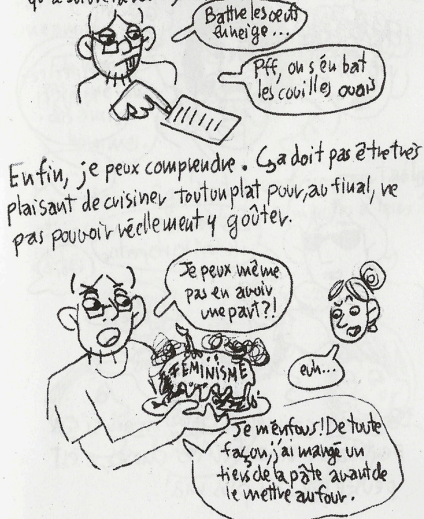 Battre les oeufs
en neige...
Pff, on s'en bat
les couilles ouais
Enfin, je peux comprendre. Ça doit pas être très
plaisant de cuisiner tout un plat pour, au final, ne
pas pouvoir réellement y goûter.
Je peux même
pas en avoir
une part?!
FÉMINISME
euh...
Je m'en fous! De toute
façon, j'ai mangé un
tiers de la pâte avant de
le mettre au four.